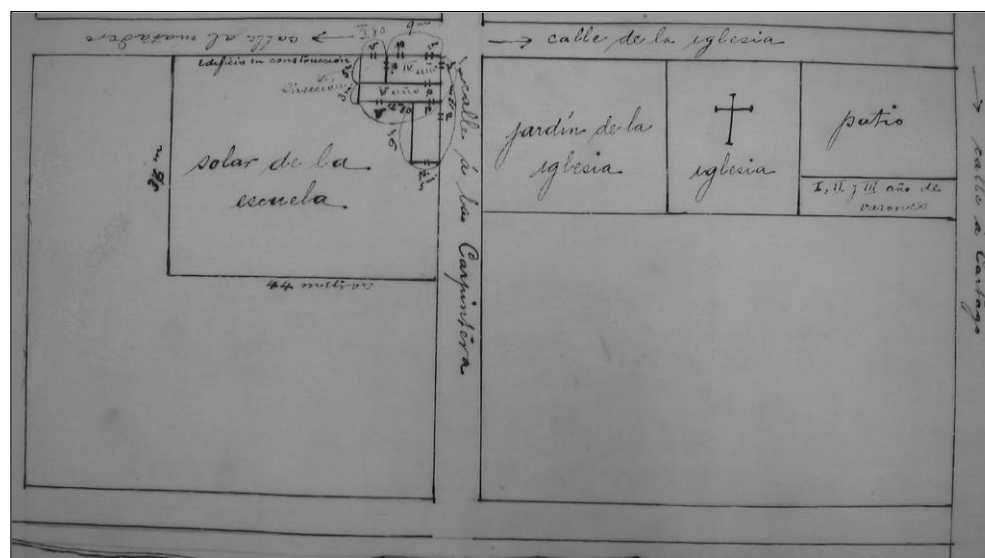 calle al matadero
calle de la iglesia
Edificio en construcción
Dirección
año
solar de la
escuela
38 m
44 metros
calle á las Carpintéra
jardín de la
iglesia
iglesia
patio
I, II y III año de
varones
calle a Cartago